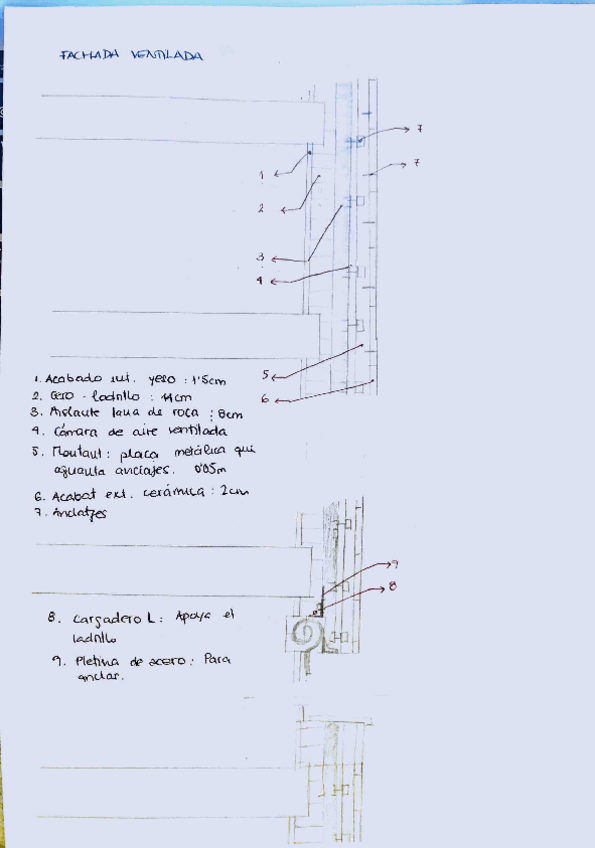 FACHADA VENTILADA
7
7
1
2
3
4
5
6
1. Acabado int. yeso : 1'5cm
2. Gero - ladrillo : 14cm
3. Aislante lana de roca : 8cm
4. Cámara de aire ventilada
5. Montant : placa metálica que
aguanta anclajes. 0'05m
6. Acabat ext. cerámica : 2cm
7. Anclatges
9
8
8. Cargadero L : Apoya el
ladrillo
9. Pletina de acero : Para
anclar.